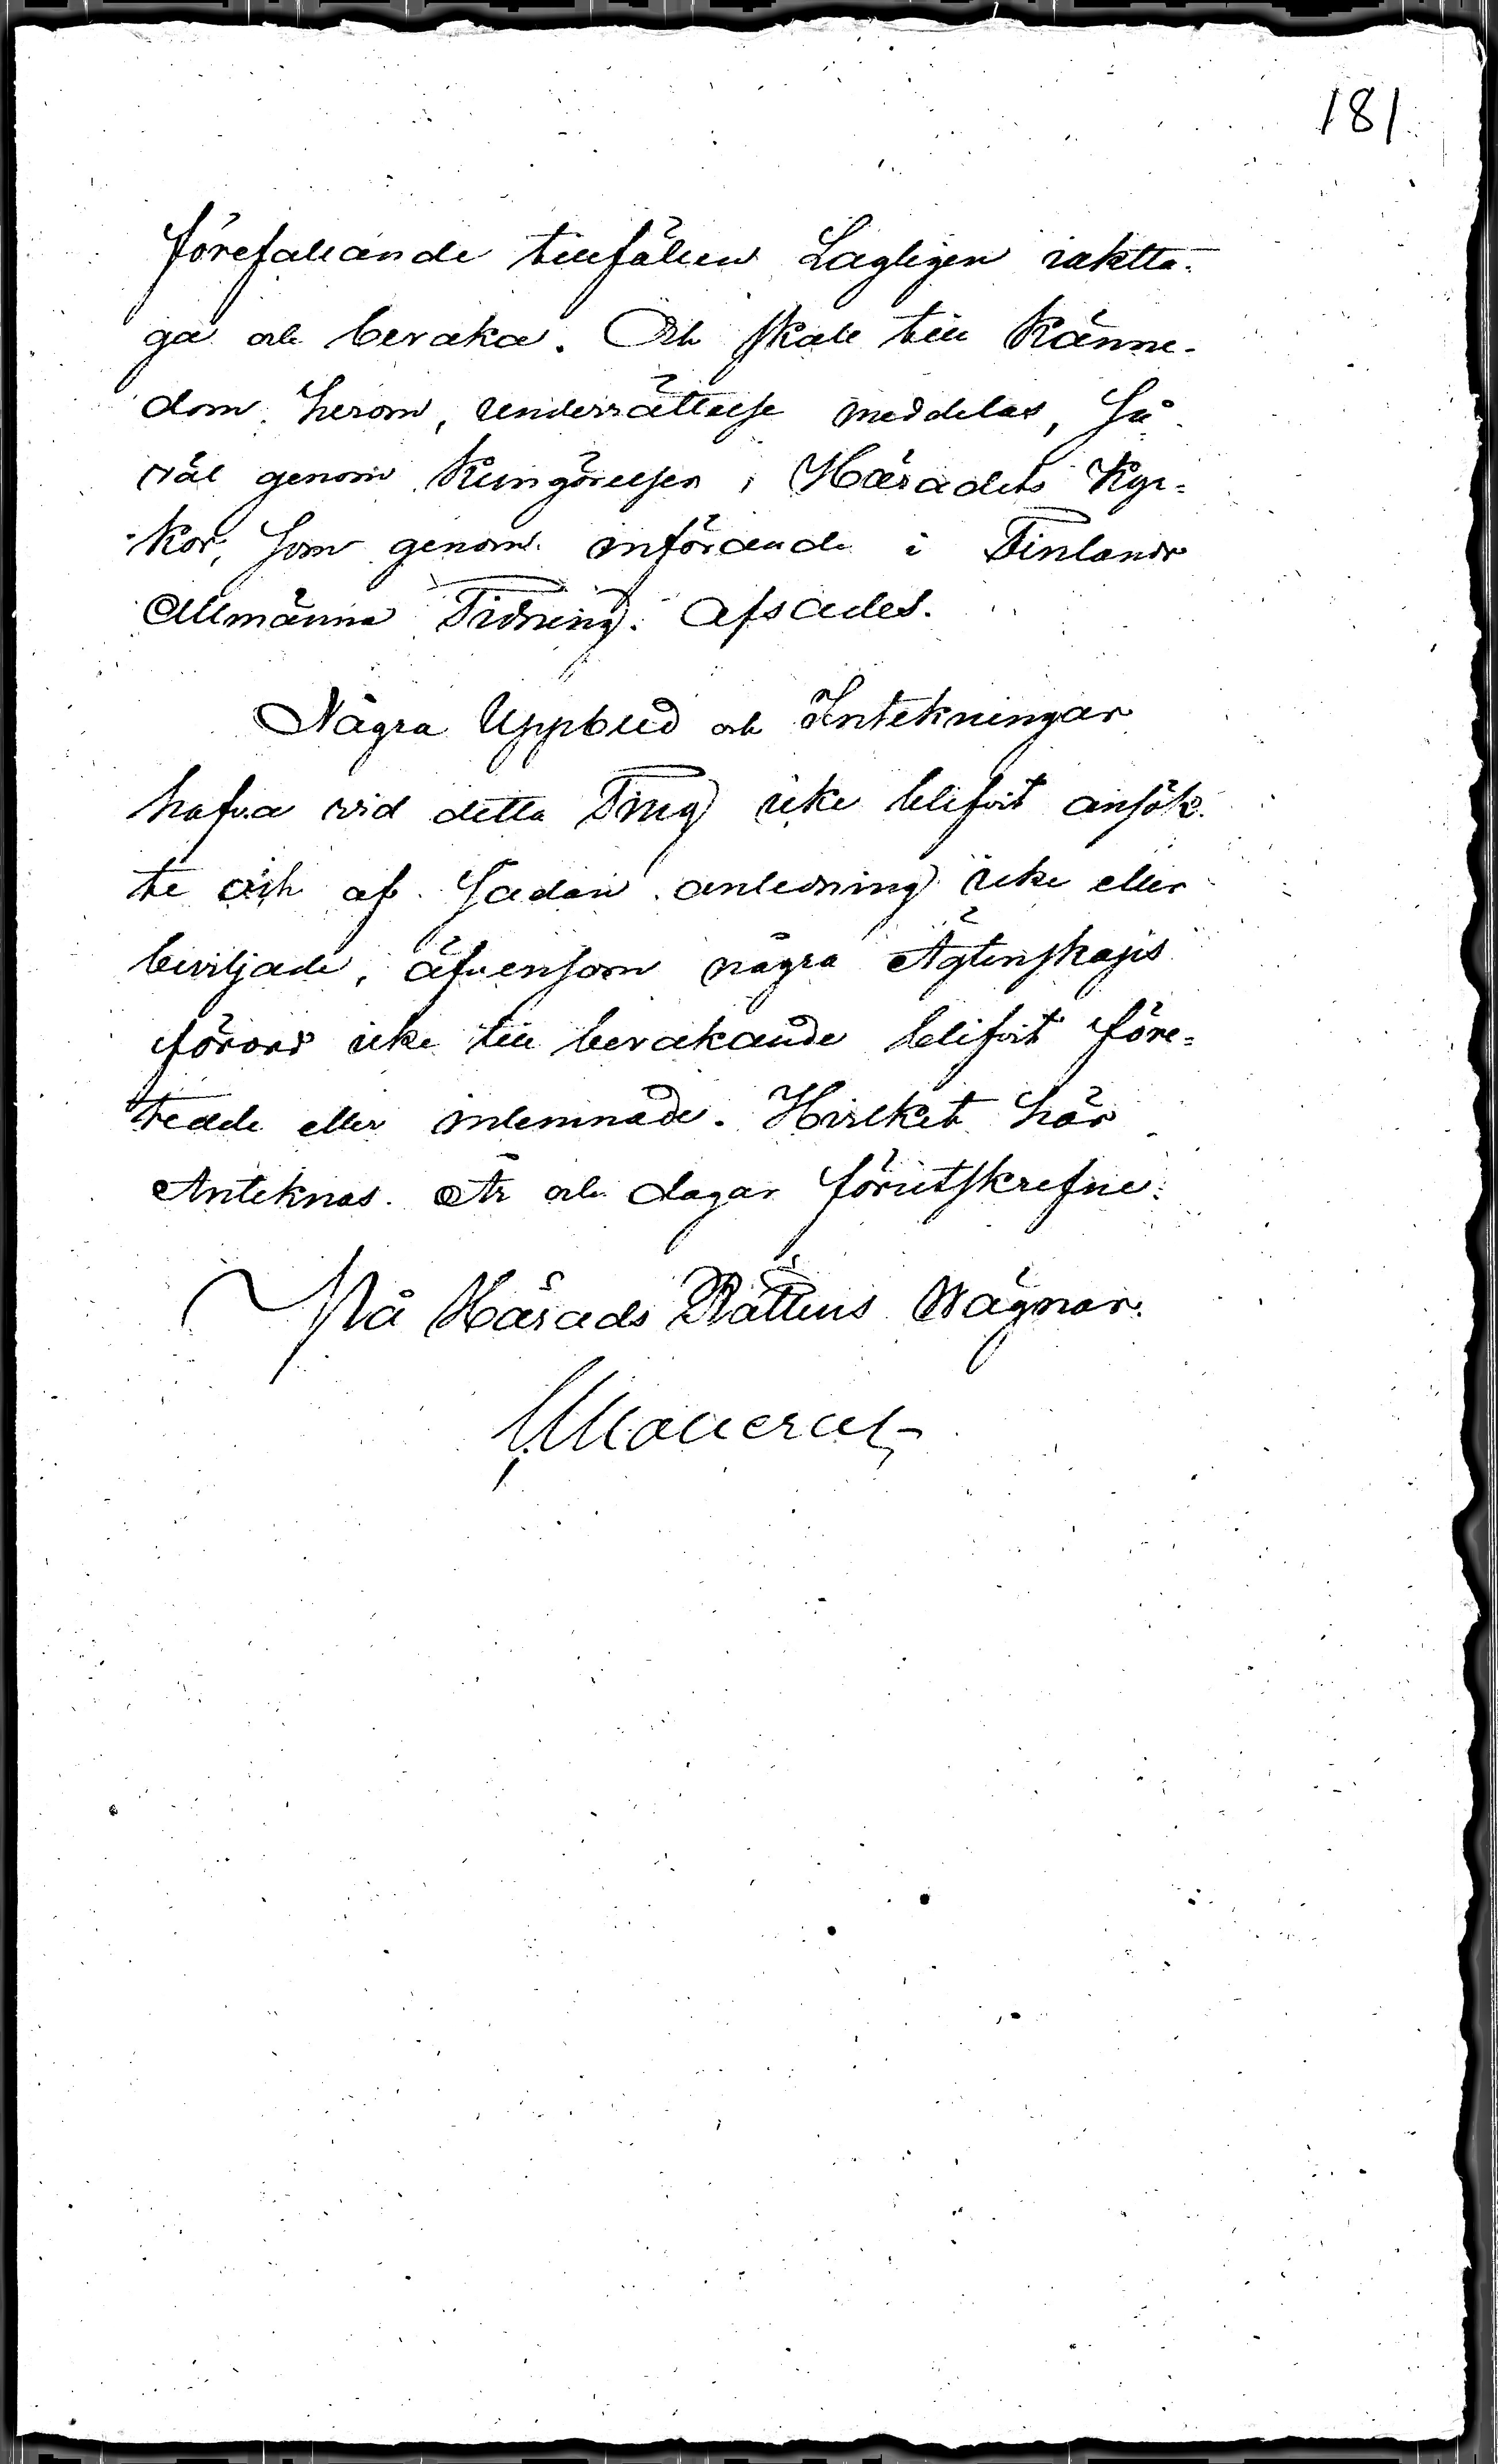 181
förefallande tillfällen Lagligen iaktta-
ga och bevaka. Och skall till Känne-
dom herom, underrättelse meddelas, så
väl genom Kungörelser i Häradets Kyr-
kor, som genom införande i Finlands
Allmänna Tidning. Afsades.
Några Uppbud och Intekningar
hafva vid detta Ting icke blifvit ansök-
te och af sådan anledning icke eller
beviljade, äfvensom några Ägtenskaps
förord icke till bevakande blifvit före-
tedde eller inlemnade. Hvilket här
Anteknas. År och dagar förutskrefne.
På Härads Rättens Wägnar.